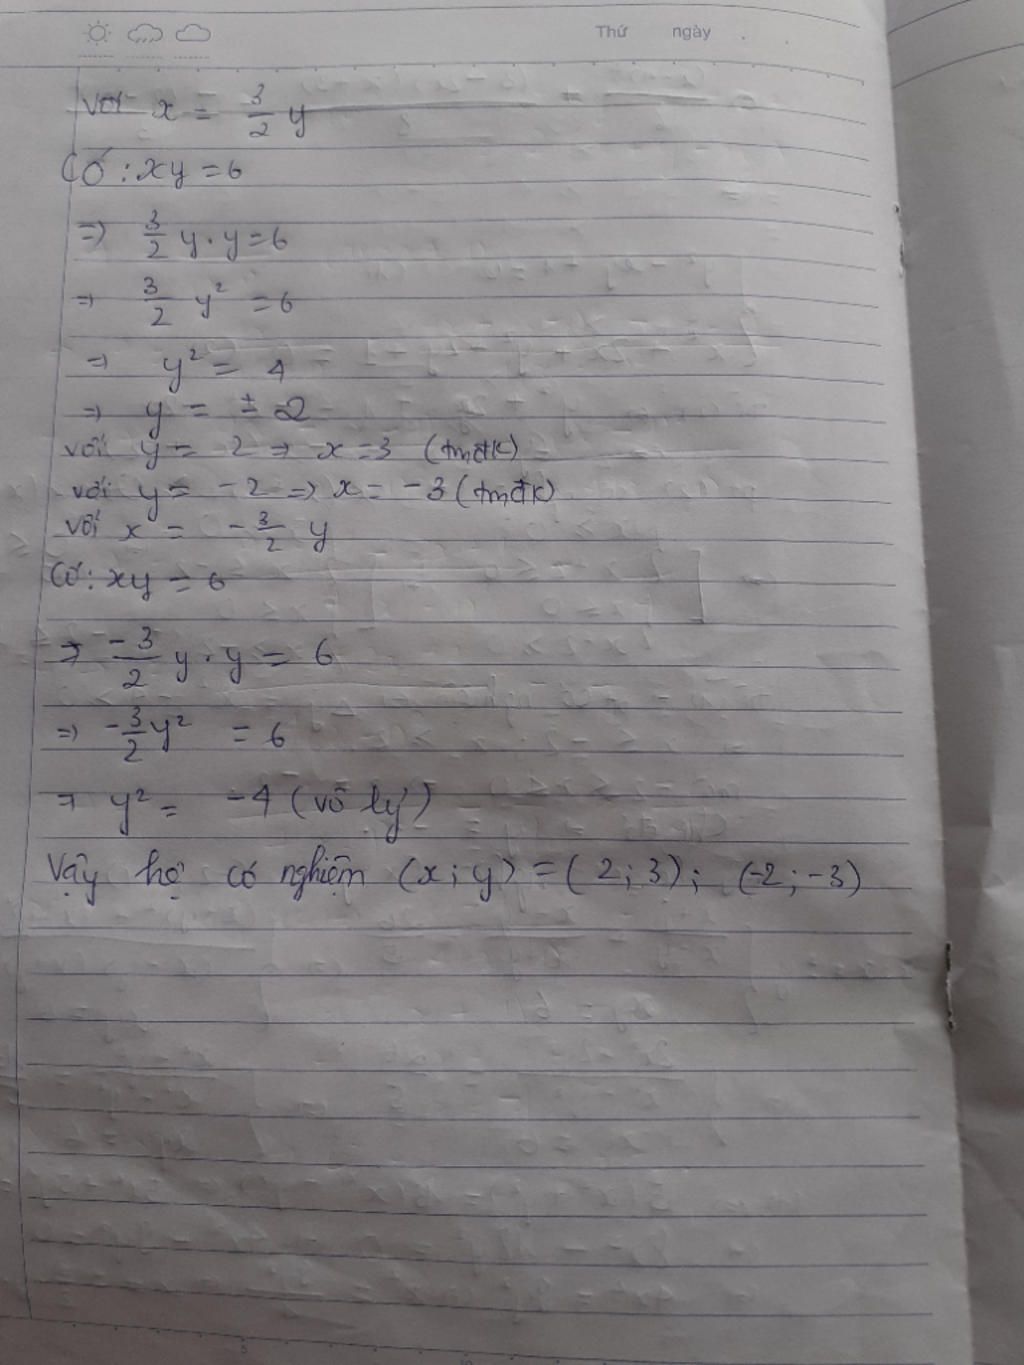 Thứ ngày
với x = 3/2 y
Có : xy = 6
=> 3/2 y . y = 6
=> 3/2 y² = 6
=> y² = 4
=> y = ± 2
với y = 2 => x = 3 (tmđk)
với y = -2 => x = -3 (tmđk)
với x = -3/2 y
Có : xy = 6
=> -3/2 y . y = 6
=> -3/2 y² = 6
=> y² = -4 (vô lý)
Vậy hệ có nghiệm (x ; y) = (2 ; 3) ; (-2 ; -3)